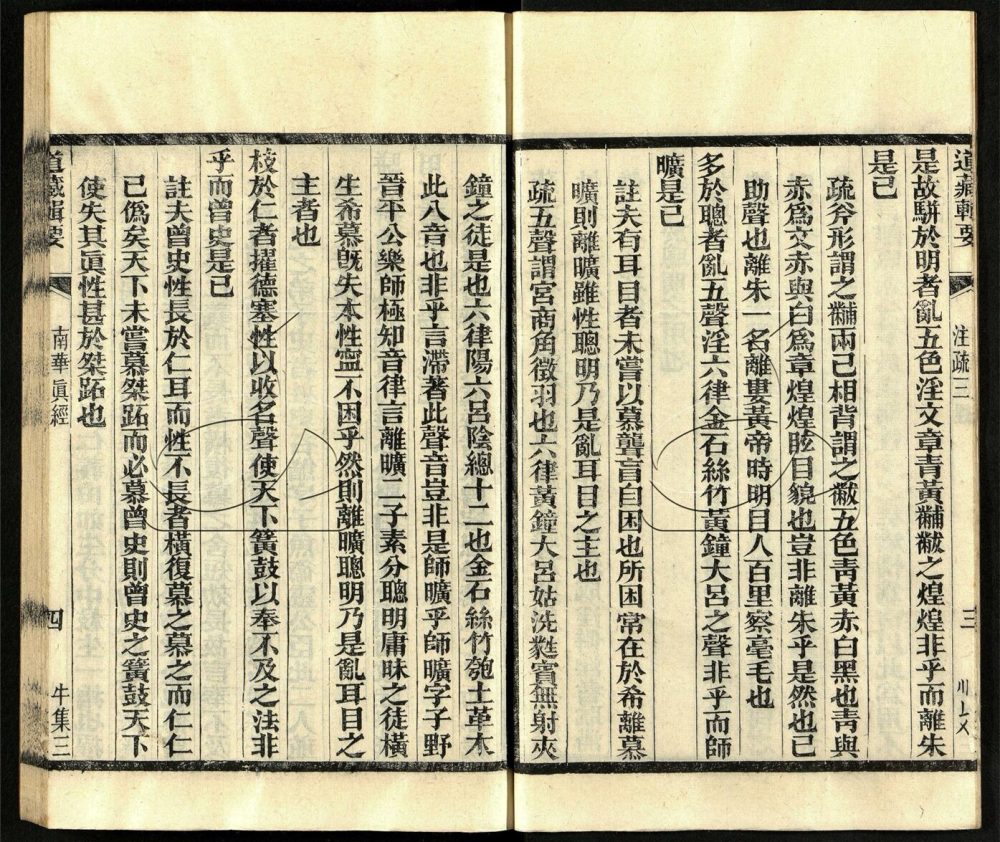 道藏輯要
注疏三
三
是故駢於明者亂五色淫文章青黃黼黻之煌煌非乎而離朱
是已
疏斧形謂之黼兩己相背謂之黻五色青黃赤白黑也青與
赤爲文赤與白爲章煌煌眩目貌也豈非離朱乎是然也已
助聲也離朱一名離婁黃帝時明目人百里察毫毛也
多於聰者亂五聲淫六律金石絲竹黃鐘大呂之聲非乎而師
曠是已
註夫有耳目者未嘗以慕聾盲自困也所困常在於希離慕
曠則離曠雖性聰明乃是亂耳目之主也
疏五聲謂宮商角徵羽也六律黃鐘大呂姑洗蕤賓無射夾
鐘之徒是也六律陽六呂陰總十二也金石絲竹匏土革木
此八音也非乎言滯著此聲音豈非是師曠乎師曠字子野
晉平公樂師極知音律言離曠二子素分聰明庸昧之徒橫
生希慕旣失本性寧不困乎然則離曠聰明乃是亂耳目之
主者也
枝於仁者擢德塞性以收名聲使天下簧鼓以奉不及之法非
乎而曾史是已
註夫曾史性長於仁耳而性不長者橫復慕之慕之而仁仁
已僞矣天下未嘗慕桀跖而必慕曾史則曾史之簧鼓天下
使失其眞性甚於桀跖也
道藏輯要
南華眞經
四
牛集三